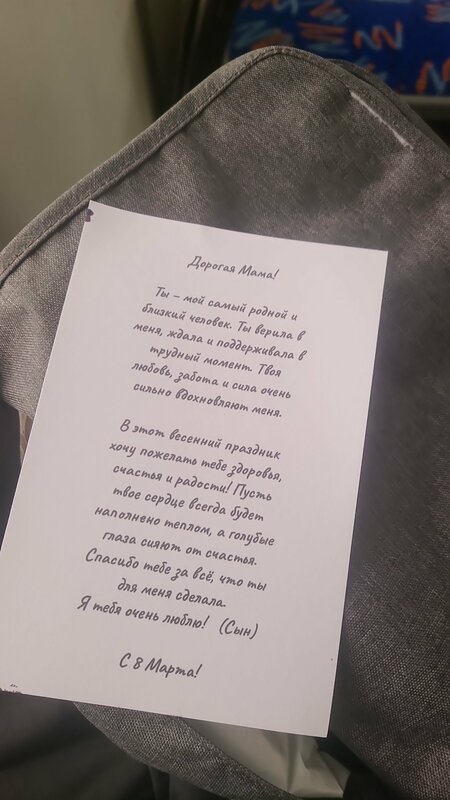 Дорогая Мама!
Ты – мой самый родной и
близкий человек. Ты верила в
меня, ждала и поддерживала в
трудный момент. Твоя
любовь, забота и сила очень
сильно вдохновляют меня.
В этот весенний праздник
хочу пожелать тебе здоровья,
счастья и радости! Пусть
твое сердце всегда будет
наполнено теплом, а голубые
глаза сияют от счастья.
Спасибо тебе за всё, что ты
для меня сделала.
Я тебя очень люблю! (Сын)
С 8 Марта!